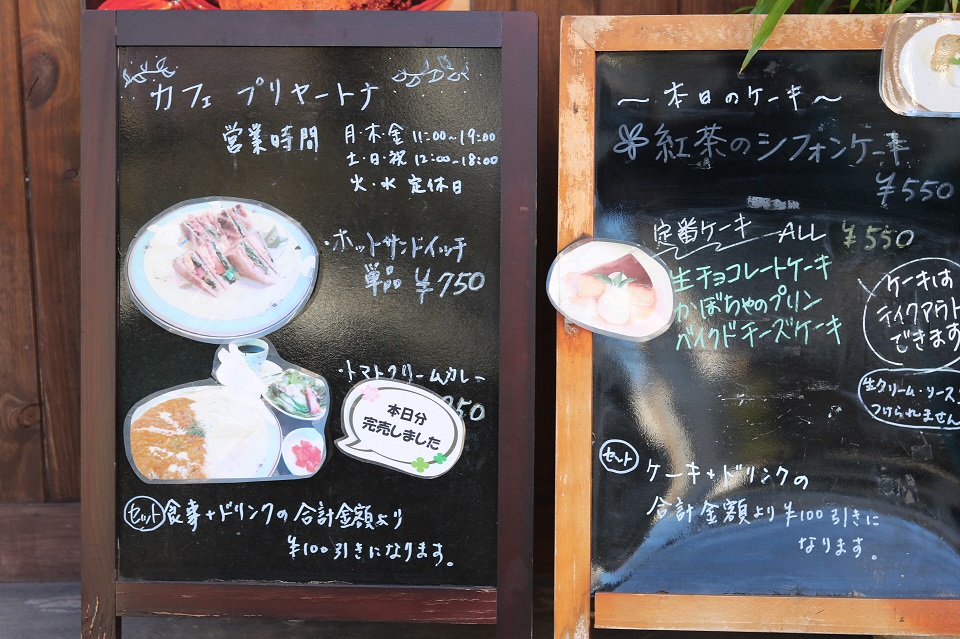 カフェ プリヤートナ
営業時間
月・木・金 11:00〜19:00
土・日・祝 12:00〜18:00
火・水 定休日
・ホットサンドイッチ
単品 ¥750
・トマトクリームカレー
50
本日分
完売しました
セット 食事+ドリンクの合計金額より
¥100引きになります。
〜本日のケーキ〜
紅茶のシフォンケーキ
¥550
定番ケーキ ALL ¥550
生チョコレートケーキ
かぼちゃのプリン
ベイクドチーズケーキ
ケーキは
テイクアウト
できます
生クリーム・ソース
つけられません
セット
ケーキ+ドリンクの
合計金額より¥100引きに
なります。